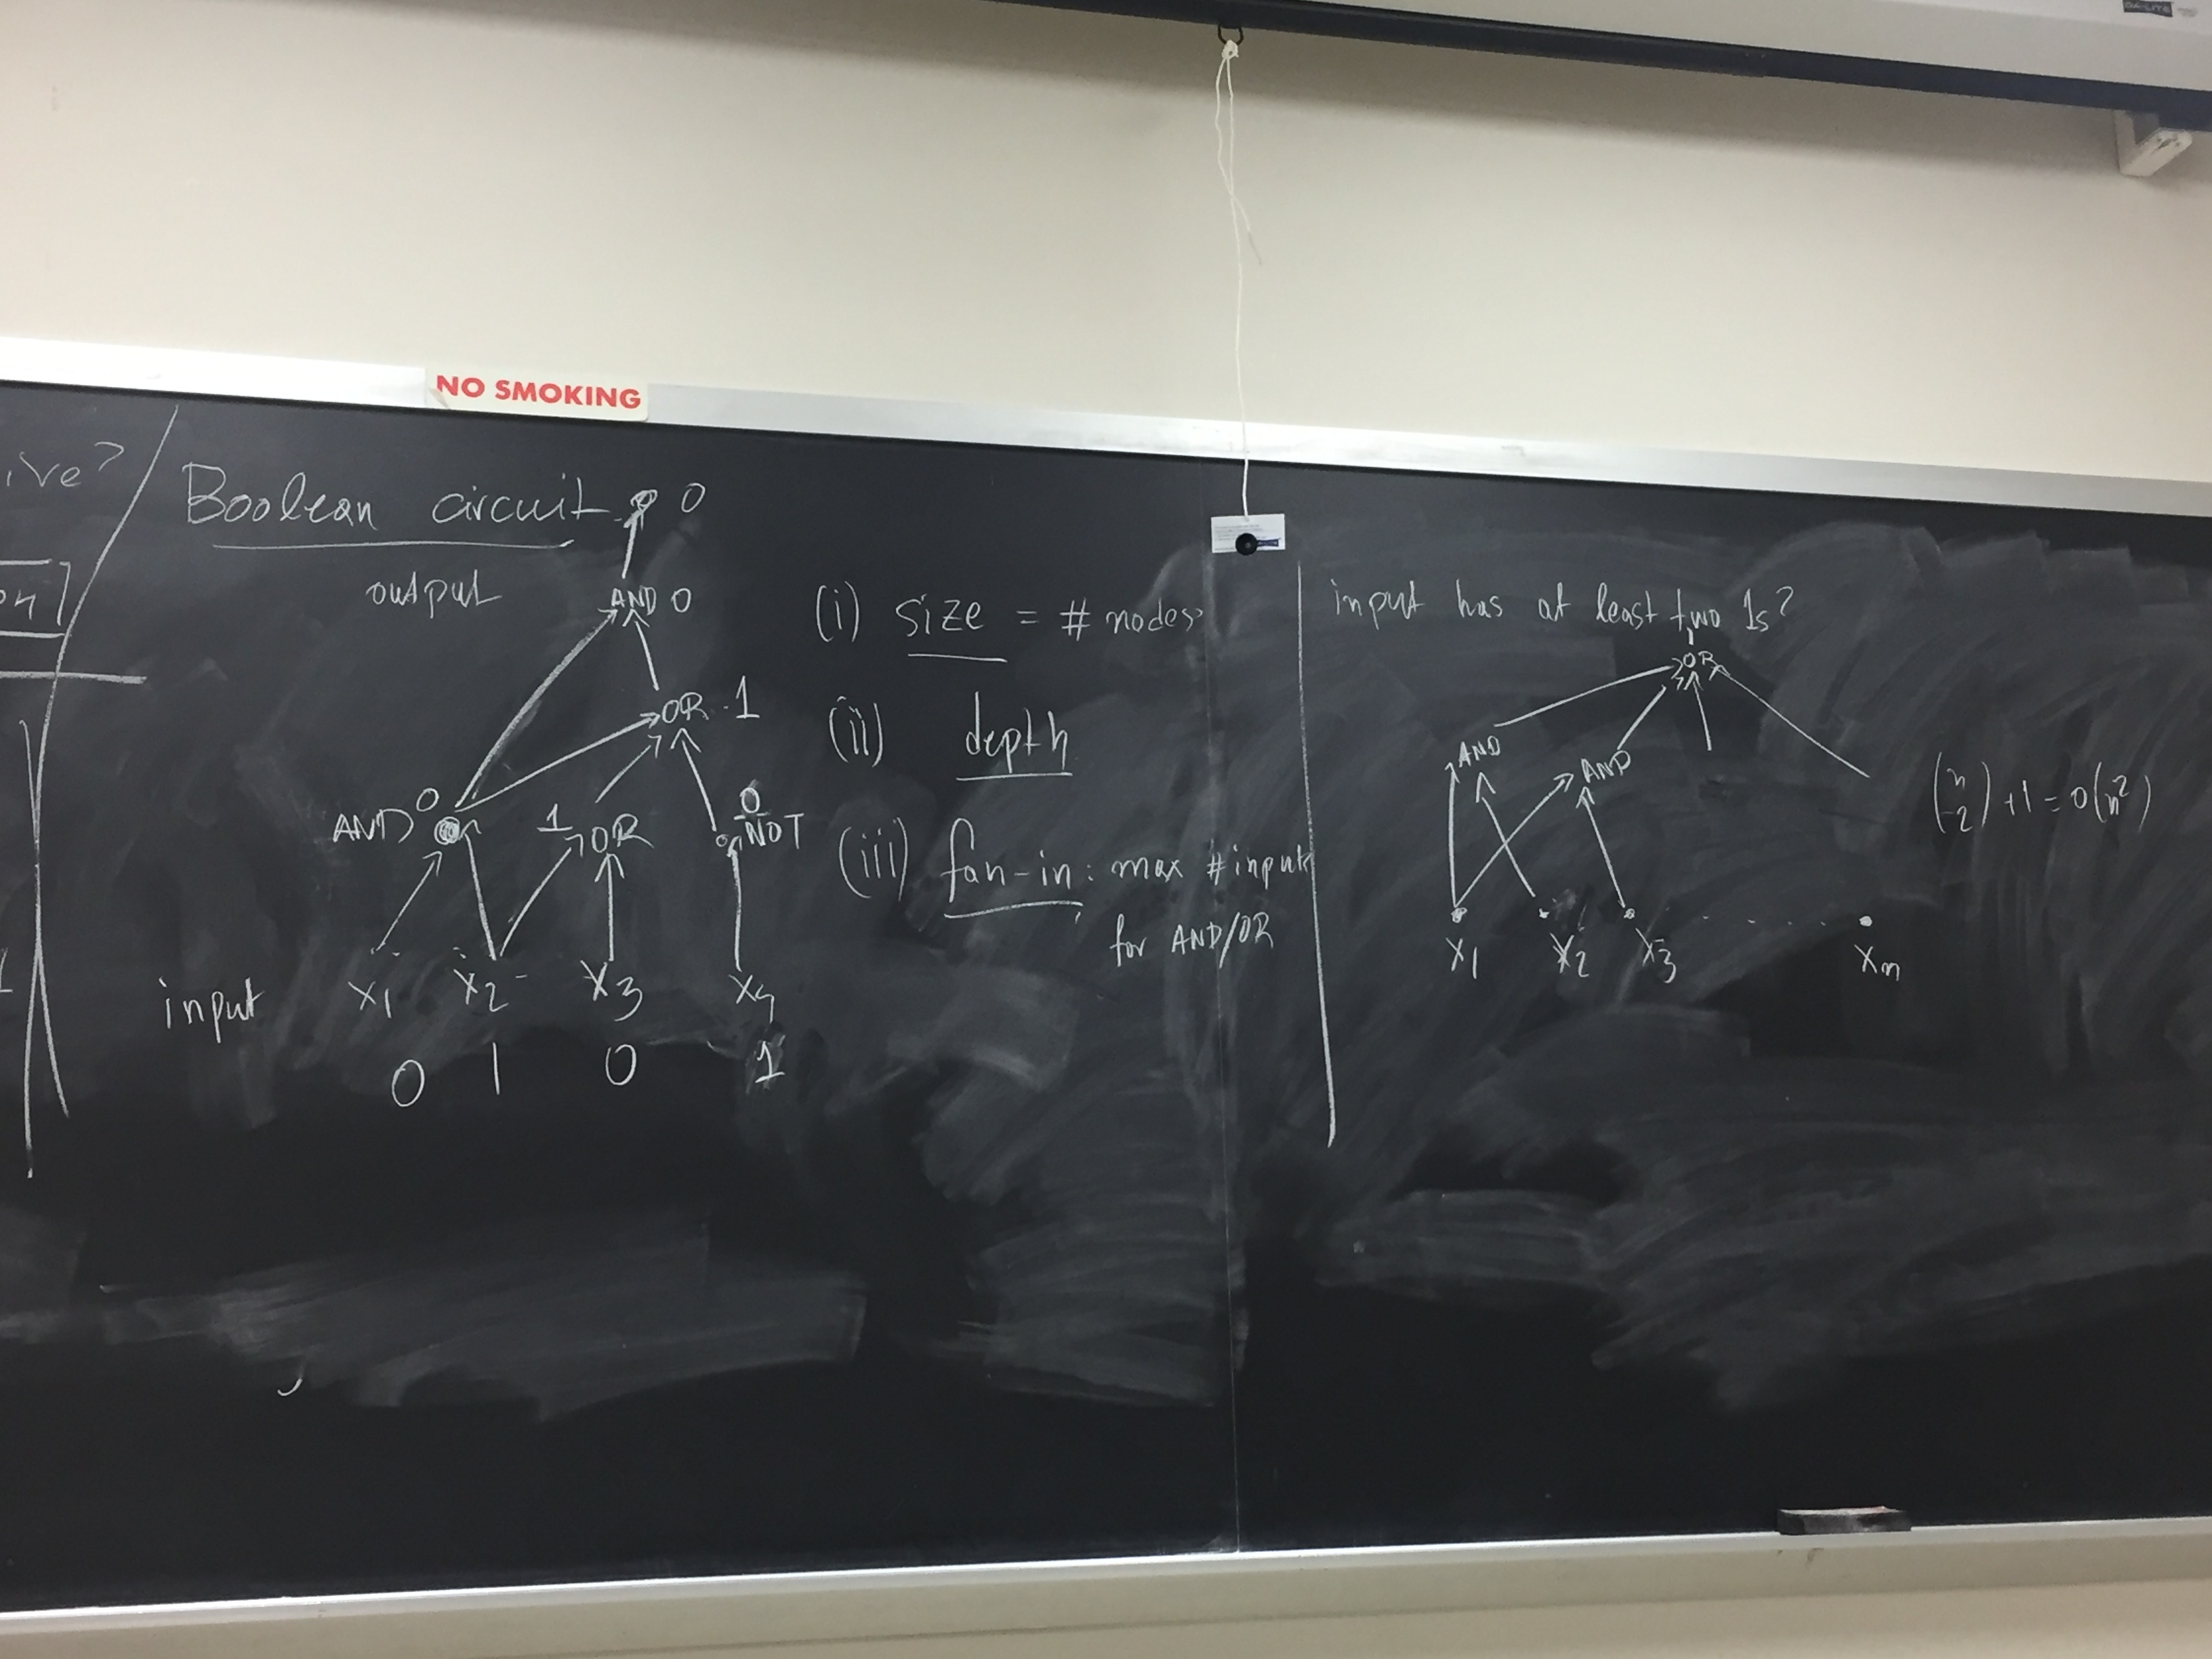 DA-LITE
NO SMOKING
ive?
on
Boolean circuit
0
output
AND 0
OR 1
AND 0
1 OR
0
NOT
input
x1 x2 x3 x4
0 1 0 1
(i) size = # nodes
(ii) depth
(iii) fan-in: max #inputs
for AND/OR
input has at least two 1s?
OR
AND
AND
x1 x2 x3 . . . . . xn
(n 2) + 1 = O(n²)